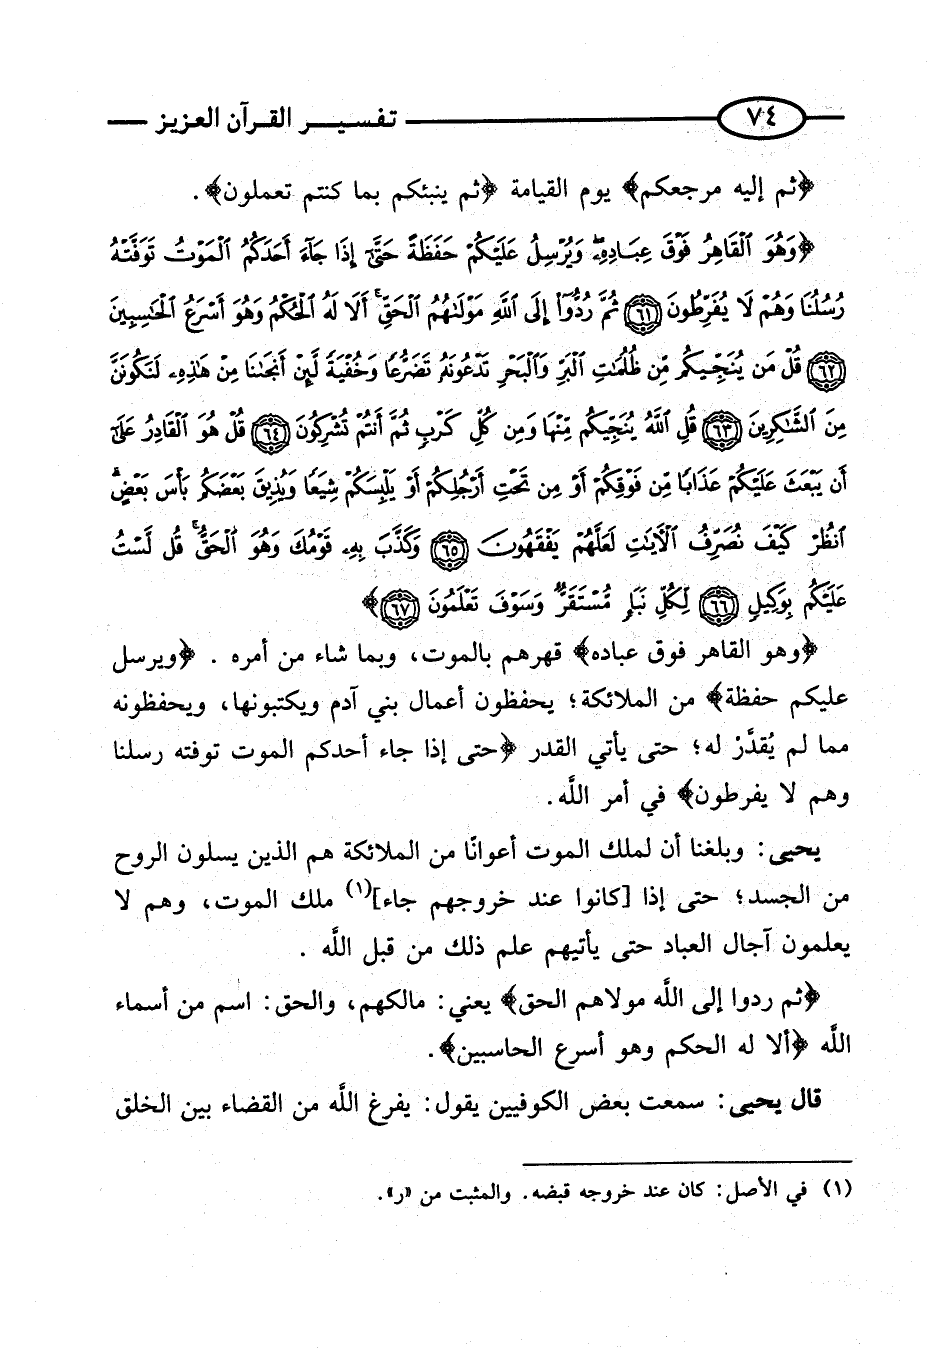 ٧٤ تفسير القرآن العزيز
﴿ثم إليه مرجعكم﴾ يوم القيامة ﴿ثم ينبئكم بما كنتم تعملون﴾ .
﴿وَهُوَ ٱلْقَاهِرُ فَوْقَ عِبَادِهِۦۖ وَيُرْسِلُ عَلَيْكُمْ حَفَظَةً حَتَّىٰٓ إِذَا جَآءَ أَحَدَكُمُ ٱلْمَوْتُ تَوَفَّتْهُ
رُسُلُنَا وَهُمْ لَا يُفَرِّطُونَ ٦١ ثُمَّ رُدُّوٓا۟ إِلَى ٱللَّهِ مَوْلَىٰهُمُ ٱلْحَقِّ ۚ أَلَا لَهُ ٱلْحُكْمُ وَهُوَ أَسْرَعُ ٱلْحَٰسِبِينَ
٦٢ قُلْ مَن يُنَجِّيكُم مِّن ظُلُمَٰتِ ٱلْبَرِّ وَٱلْبَحْرِ تَدْعُونَهُۥ تَضَرُّعًا وَخُفْيَةً لَّئِنْ أَنجَىٰنَا مِنْ هَٰذِهِۦ لَنَكُونَنَّ
مِنَ ٱلشَّٰكِرِينَ ٦٣ قُلِ ٱللَّهُ يُنَجِّيكُم مِّنْهَا وَمِن كُلِّ كَرْبٍ ثُمَّ أَنتُمْ تُشْرِكُونَ ٦٤ قُلْ هُوَ ٱلْقَادِرُ عَلَىٰٓ
أَن يَبْعَثَ عَلَيْكُمْ عَذَابًا مِّن فَوْقِكُمْ أَوْ مِن تَحْتِ أَرْجُلِكُمْ أَوْ يَلْبِسَكُمْ شِيَعًا وَيُذِيقَ بَعْضَكُم بَأْسَ بَعْضٍ ۗ
ٱنظُرْ كَيْفَ نُصَرِّفُ ٱلْءَايَٰتِ لَعَلَّهُمْ يَفْقَهُونَ ٦٥ وَكَذَّبَ بِهِۦ قَوْمُكَ وَهُوَ ٱلْحَقُّ ۚ قُل لَّسْتُ
عَلَيْكُم بِوَكِيلٍ ٦٦ لِّكُلِّ نَبَإٍ مُّسْتَقَرٌّ ۚ وَسَوْفَ تَعْلَمُونَ ٦٧﴾
﴿وهو القاهر فوق عباده﴾ قهرهم بالموت، وبما شاء من أمره . ﴿ويرسل
عليكم حفظة﴾ من الملائكة؛ يحفظون أعمال بني آدم ويكتبونها، ويحفظونه
مما لم يُقدَّرْ له؛ حتى يأتي القدر ﴿حتى إذا جاء أحدكم الموت توفته رسلنا
وهم لا يفرطون﴾ في أمر اللَّه.
يحيى: وبلغنا أن لملك الموت أعوانًا من الملائكة هم الذين يسلون الروح
من الجسد؛ حتى إذا [كانوا عند خروجهم جاء](١) ملك الموت، وهم لا
يعلمون آجال العباد حتى يأتيهم علم ذلك من قبل اللَّه .
﴿ثم ردوا إلى اللَّه مولاهم الحق﴾ يعني: مالكهم، والحق: اسم من أسماء
اللَّه ﴿ألا له الحكم وهو أسرع الحاسبين﴾.
قال يحيى: سمعت بعض الكوفيين يقول: يفرغ اللَّه من القضاء بين الخلق
(١) في الأصل: كان عند خروجه قبضه. والمثبت من «ر».